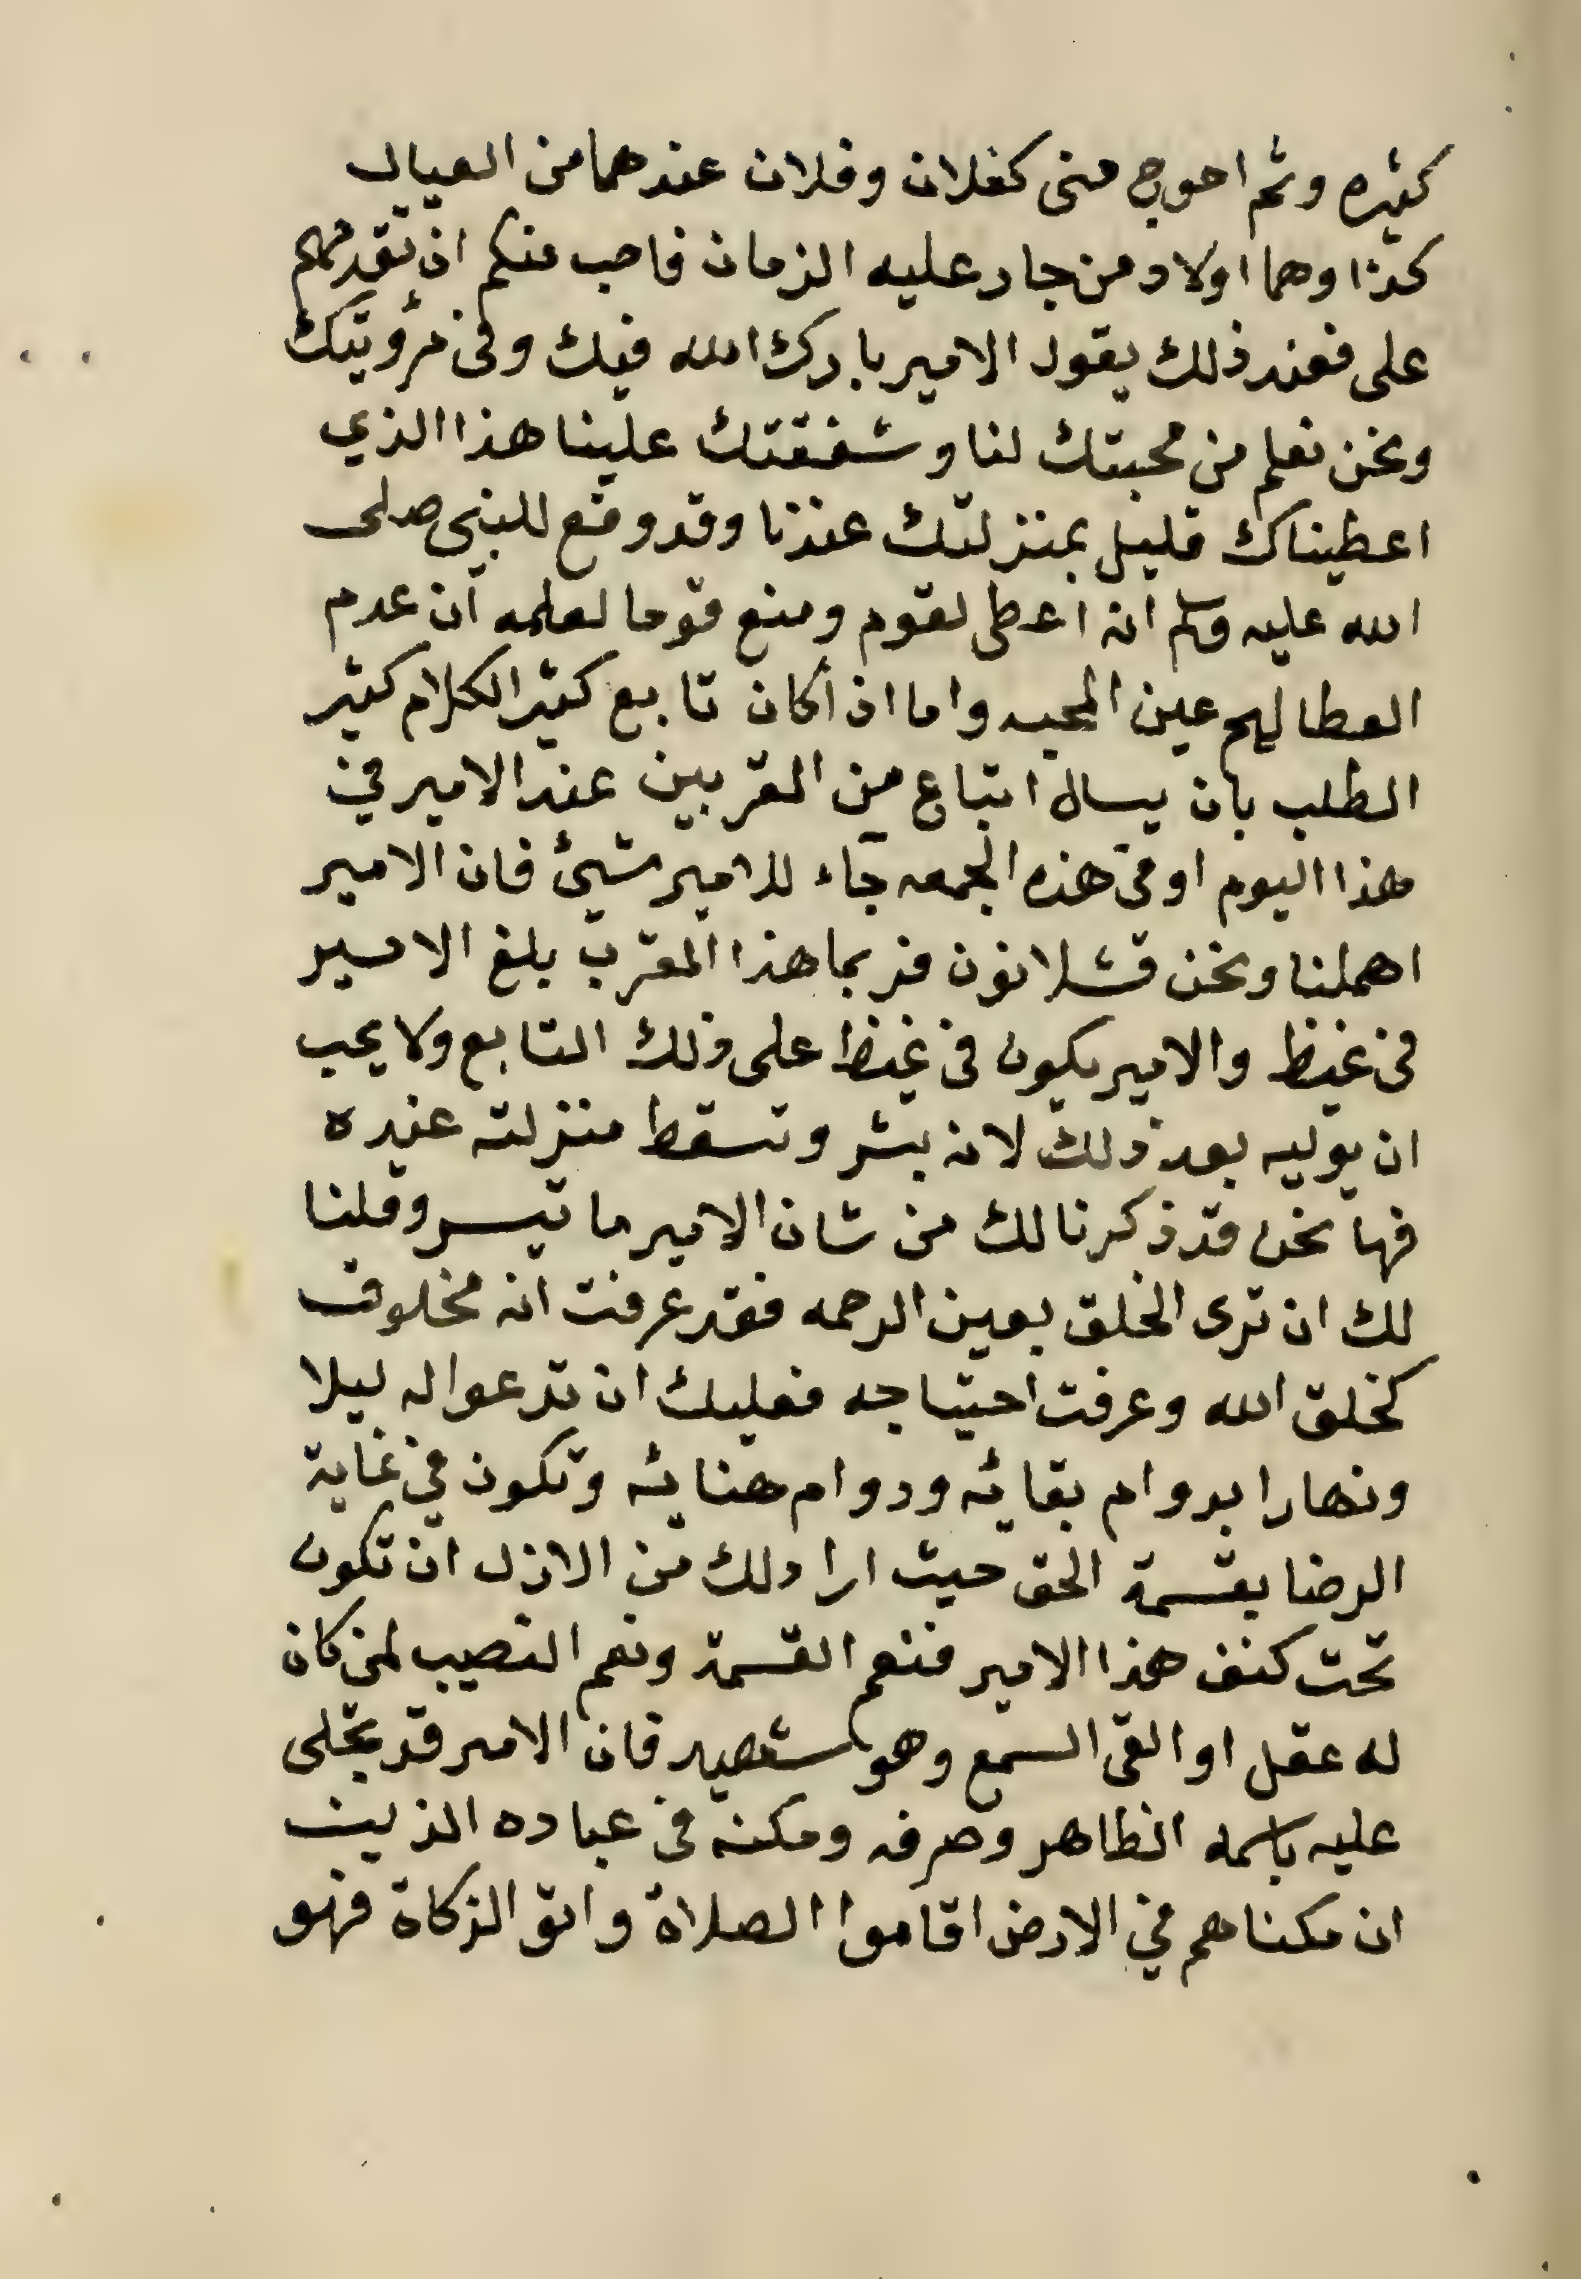 كثيره وثم احوج منى كفلان وفلان عندهما من العيال
كذا وهما اولاد من جار عليه الزمان فاحب منكم ان تقدمهم
على فعند ذلك يقول الامير بارك الله فيك وفى مرؤيتك
ونحن نعلم من محبتك لنا وشفقتك علينا هذا الذي
اعطيناك قليل بمنزلتك عندنا وقد وقع للنبى صلى
الله عليه وسلم انه اعطى لقوم ومنع قوما لعلمه ان عدم
العطا لهم عين المحبه واما اذا كان تابع كثير الكلام كثير
الطلب بان يسال اتباع من المقربين عند الامير في
هذا اليوم او فى هذه الجمعه جاء للامير شيئ فان الامير
اهملنا ونحن قشلانون فربما هذا المقرب بلغ الامير
فى غيظ والامير يكون فى غيظ على ذلك التابع ولا يحب
ان يوليه بعد ذلك لانه بشر وتسقط منزلته عنده
فها نحن قد ذكرنا لك من شان الامير ما تيسر وقلنا
لك ان ترى الخلق بعين الرحمه فقد عرفت انه مخلوق
كخلق الله وعرفت احتياجه فعليك ان تدعوا له ليلا
ونهارا بدوام بقائه ودوام هنائه وتكون في غاية
الرضا بقسمة الحق حيث اراد لك من الازل ان تكون
تحت كنف هذا الامير فنعم القسمة ونعم النصيب لمن كان
له عقل او القى السمع وهو شهيد فان الامير قد تجلى
عليه باسمه الظاهر وصرفه ومكنه فى عباده الذين
ان مكناهم في الارض اقاموا الصلاة واتو الزكاة فهو